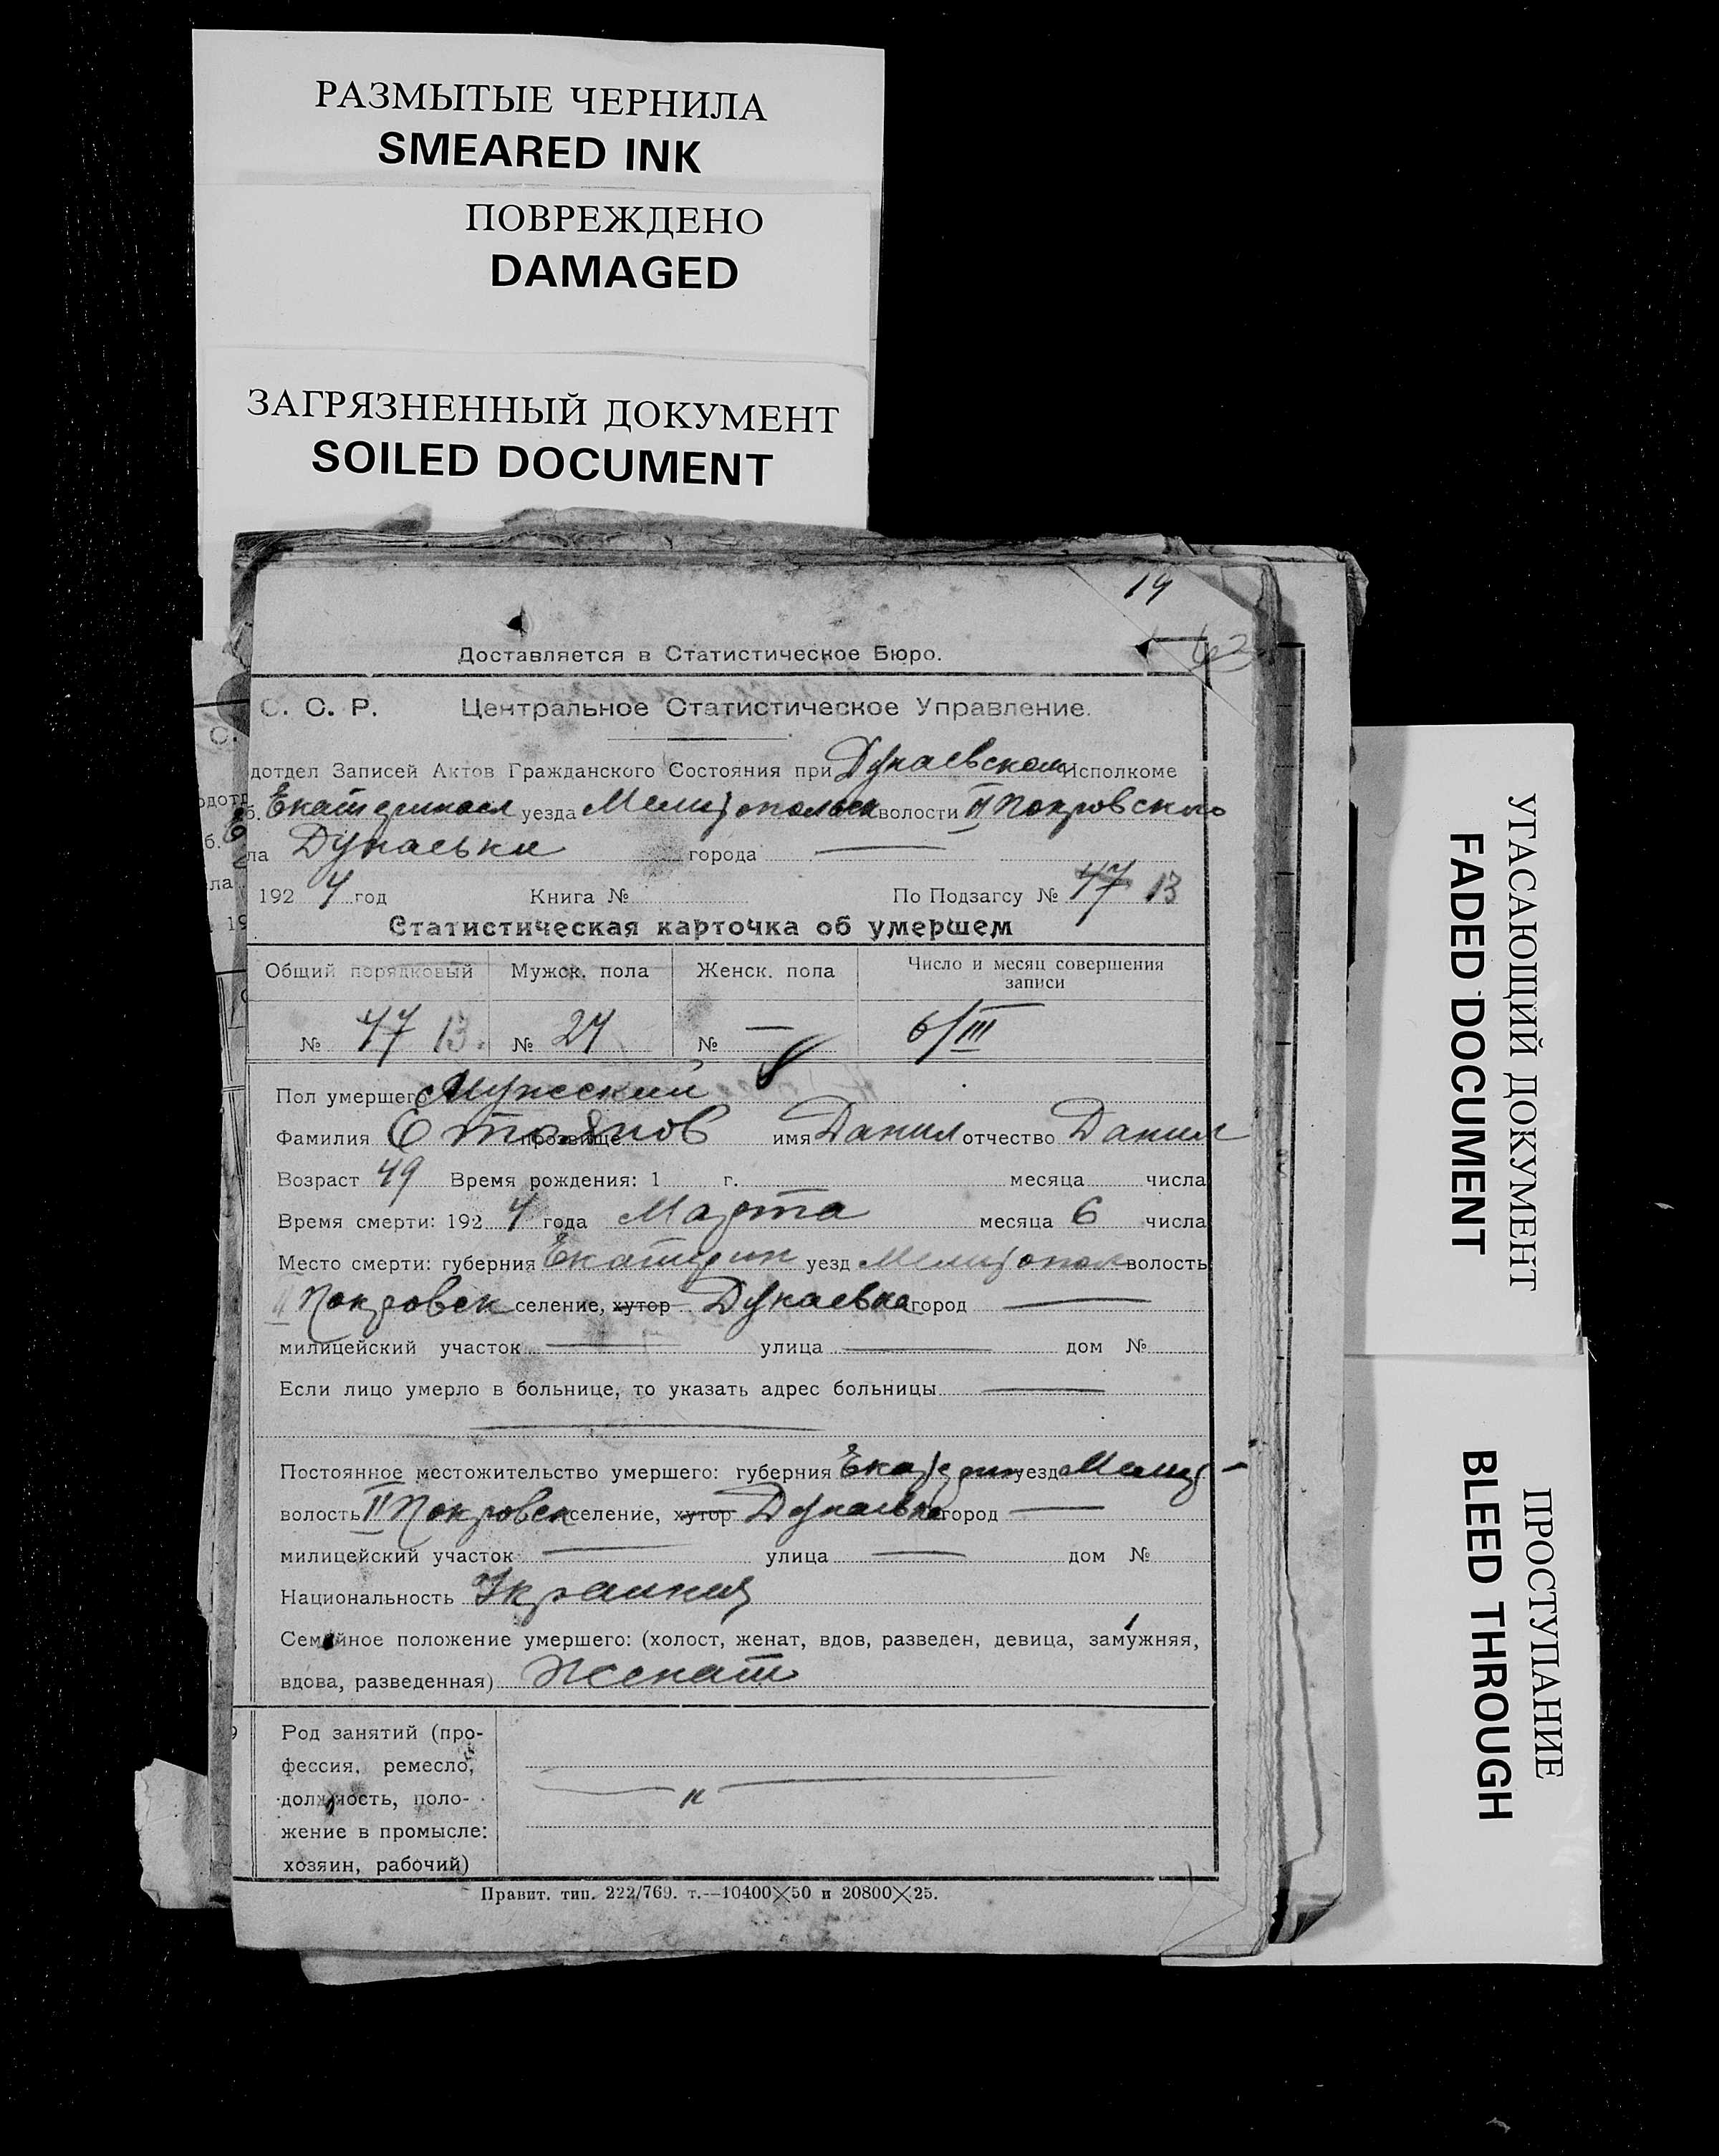 РАЗМЫТЫЕ ЧЕРНИЛА
SMEARED INK
ПОВРЕЖДЕНО
DAMAGED
ЗАГРЯЗНЕННЫЙ ДОКУМЕНТ
SOILED DOCUMENT
14
Доставляется в Статистическое Бюро.
С. С. Р. Центральное Статистическое Управление.
дотдел Записей Актов Гражданского Состояния при Дунаевском Исполкоме
б. Екатериносл уезда Мелитопольск волости II Покровского
ла Дунаевки города —
192 4 год Книга № По Подзагсу № 47 13
Статистическая карточка об умершем
Общий порядковый Мужск. пола Женск. пола Число и месяц совершения записи
№ 47 13. № 24 № — 6/III
Пол умершего Мужеский
Фамилия Стоянов прозвище имя Данил отчество Данил
Возраст 49 Время рождения: 1 г. месяца числа
Время смерти: 192 4 года Марта месяца 6 числа
Место смерти: губерния Екатерин уезд Мелитопол волость
II Покровск селение, хутор Дунаевка город —
милицейский участок — улица — дом №
Если лицо умерло в больнице, то указать адрес больницы —
Постоянное местожительство умершего: губерния Екатерин уезд Мелит-
волость II Покровск селение, хутор Дунаевка город —
милицейский участок — улица — дом №
Национальность Украинец
Семейное положение умершего: (холост, женат, вдов, разведен, девица, замужняя,
вдова, разведенная) Женат
Род занятий (про-
фессия, ремесло,
должность, поло-
жение в промысле:
хозяин, рабочий)
Правит. тип. 222/769. т.—10400×50 и 20800×25.
УГАСАЮЩИЙ ДОКУМЕНТ
FADED DOCUMENT
ПРОСТУПАНИЕ
BLEED THROUGH